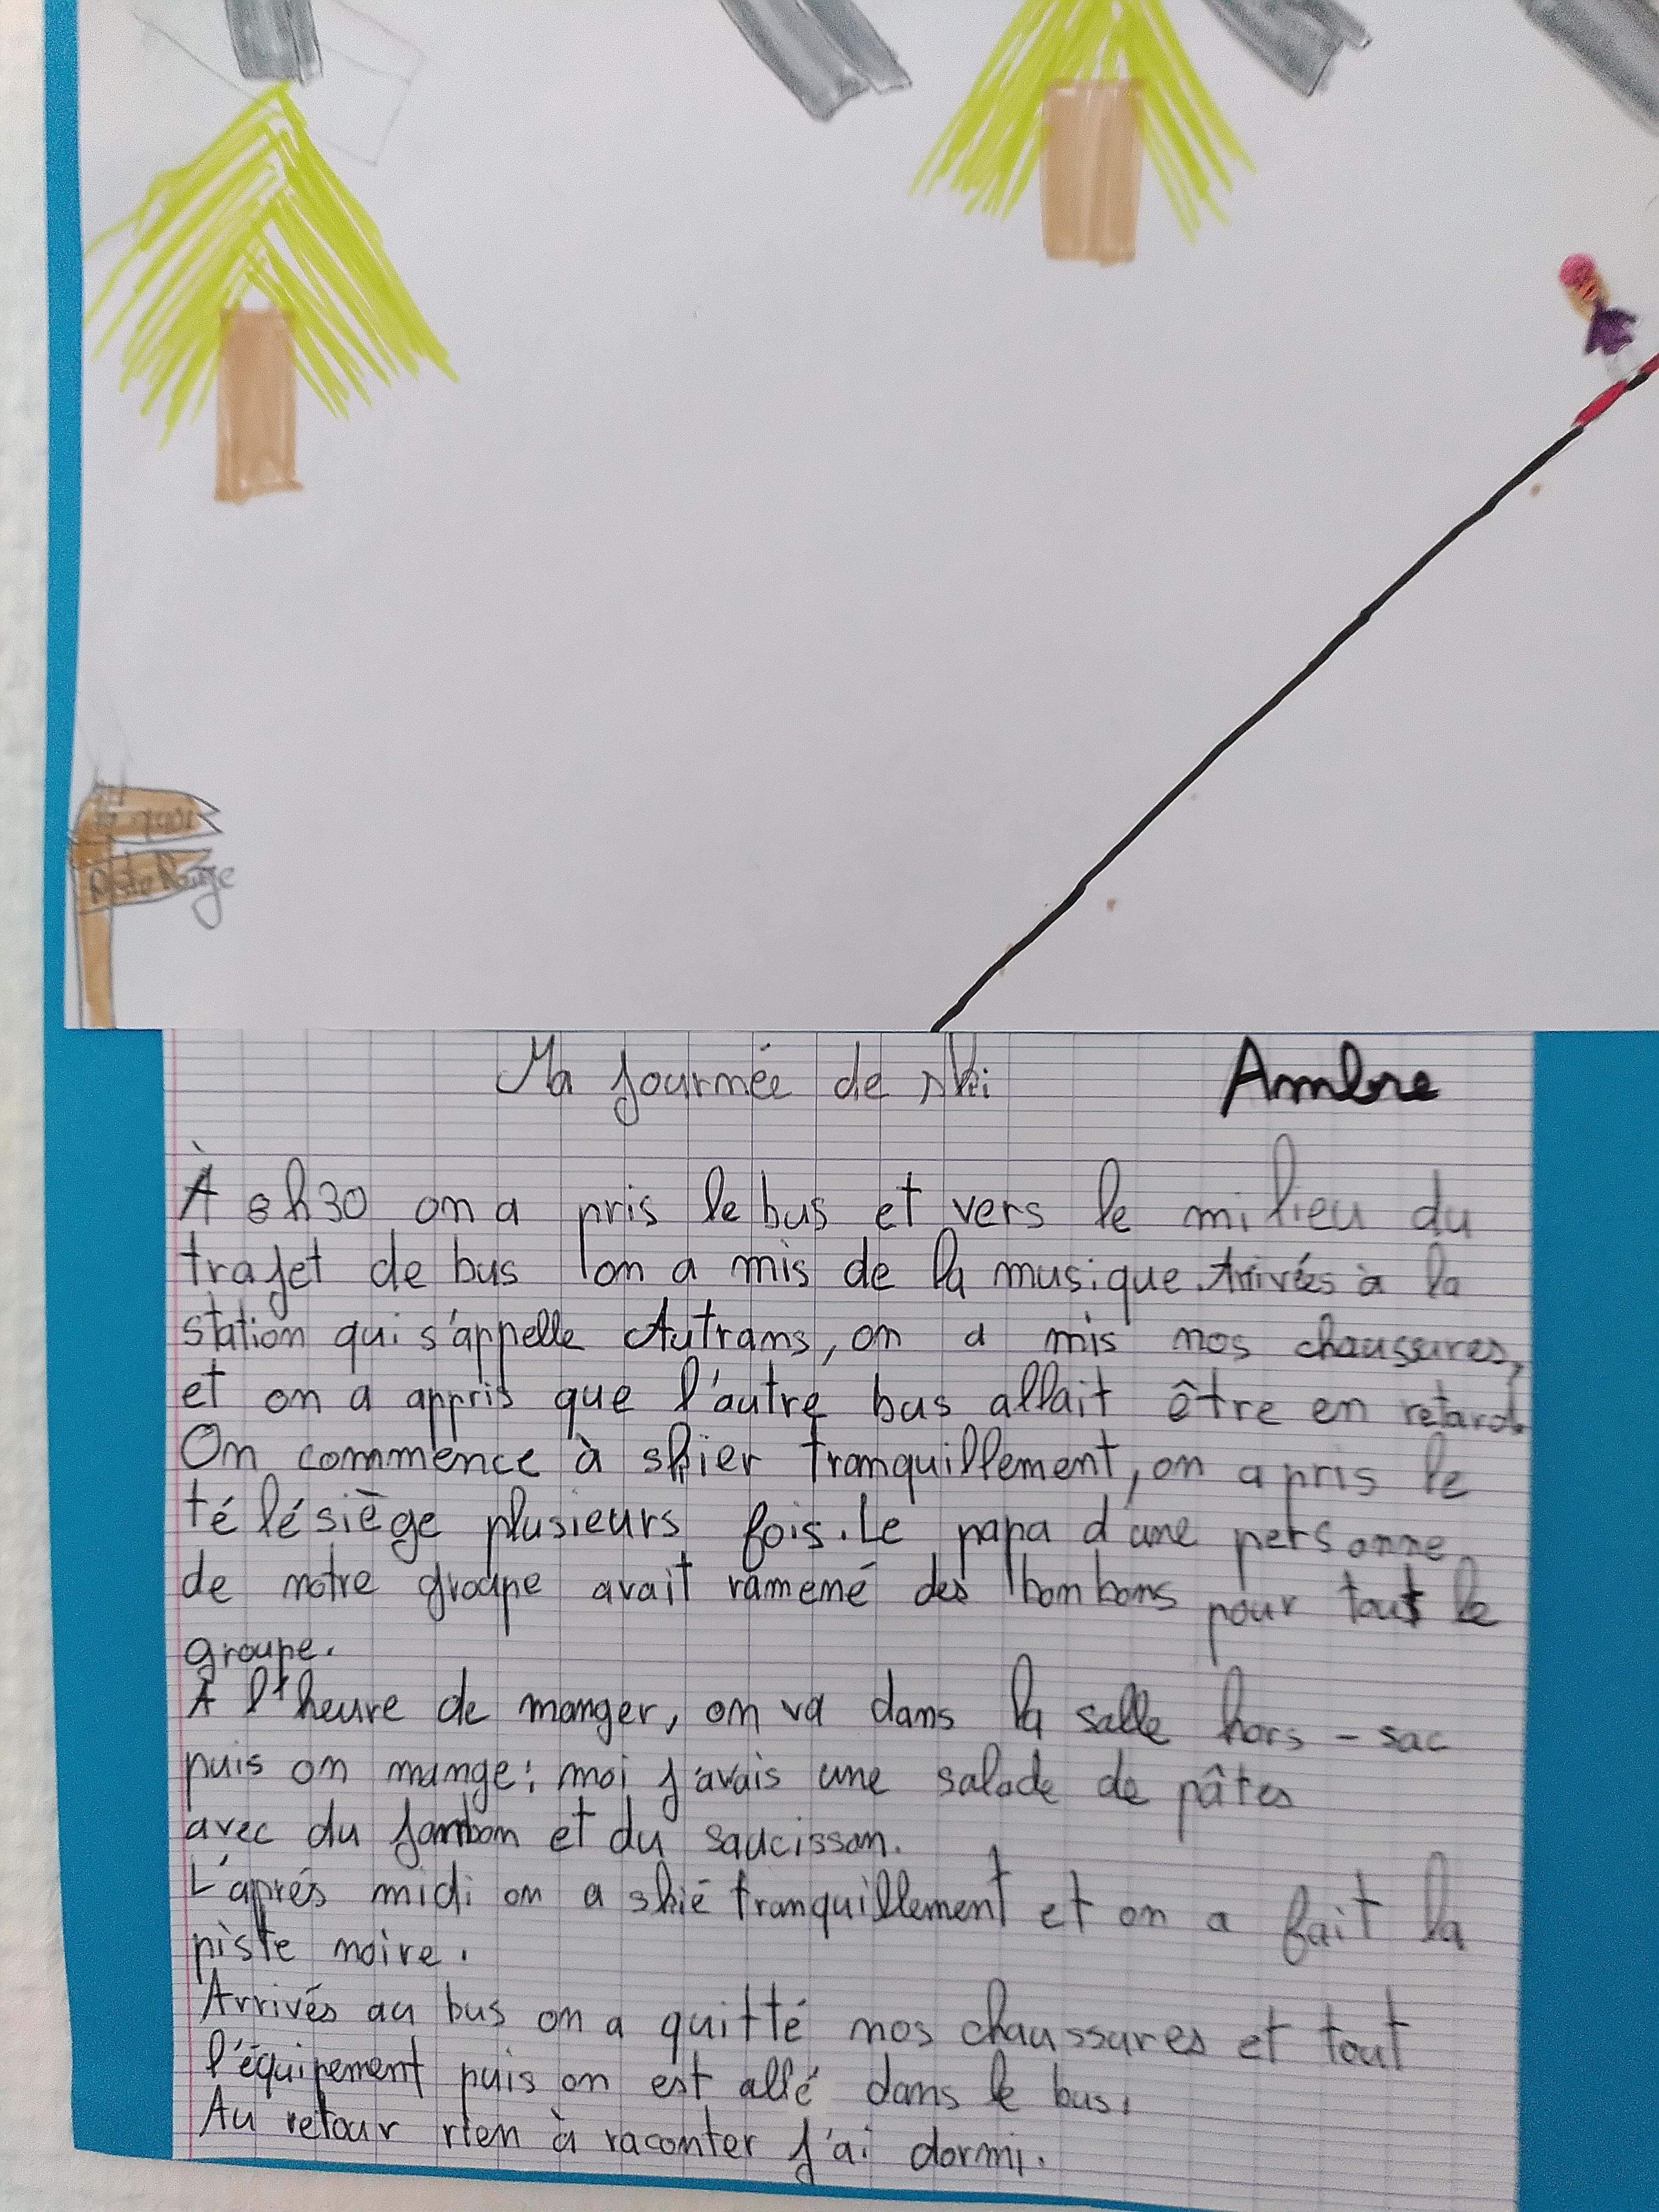 Piste Rouge
Ma journée de ski
Ambre
À 8h30 on a pris le bus et vers le milieu du
trajet de bus on a mis de la musique. Arrivés à la
station qui s'appelle Autrans, on a mis nos chaussures,
et on a appris que l'autre bus allait être en retard.
On commence à skier tranquillement, on a pris le
télésiège plusieurs fois. Le papa d'une personne
de notre groupe avait ramené des bonbons pour tout le
groupe.
A l'heure de manger, on va dans la salle hors-sac
puis on mange: moi j'avais une salade de pâtes
avec du jambon et du saucisson.
L'aprés midi on a skié tranquillement et on a fait la
piste noire.
Arrivés au bus on a quitté nos chaussures et tout
l'équipement puis on est allé dans le bus.
Au retour rien à raconter j'ai dormi.